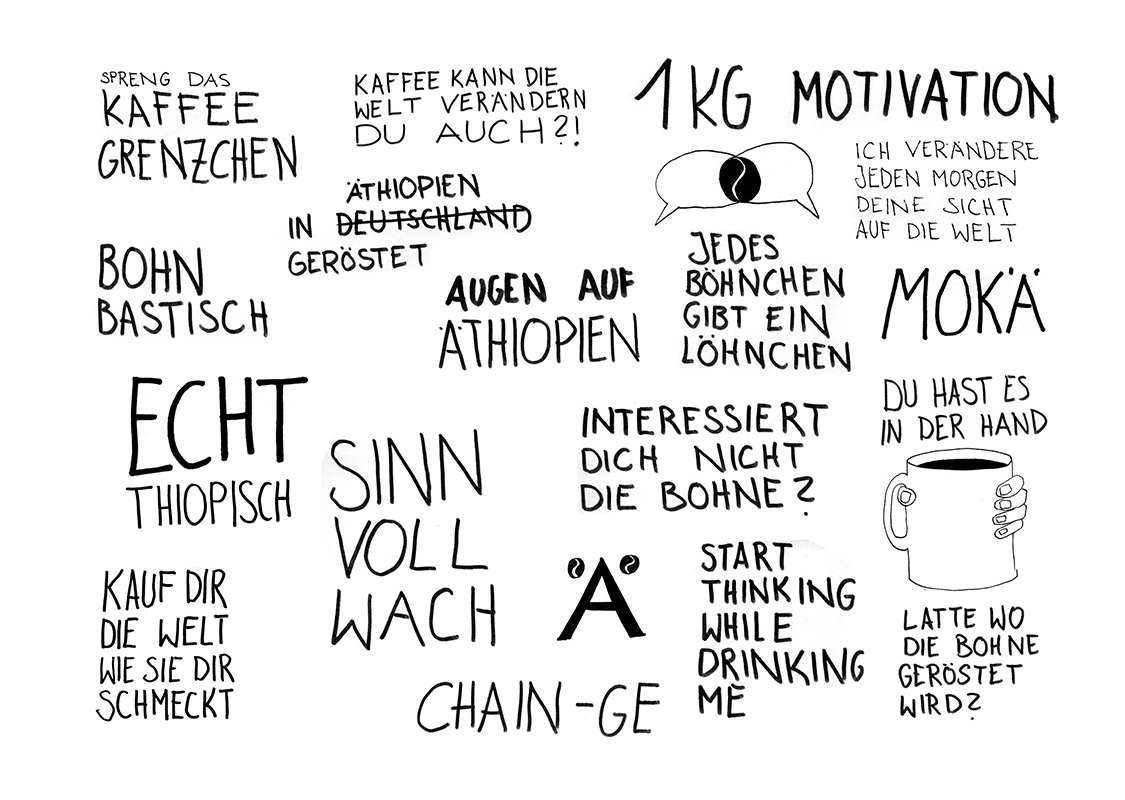 SPRENG DAS
KAFFEE
GRENZCHEN
KAFFEE KANN DIE
WELT VERÄNDERN
DU AUCH?!
1 KG MOTIVATION
ICH VERÄNDERE
JEDEN MORGEN
DEINE SICHT
AUF DIE WELT
ÄTHIOPIEN
IN DEUTSCHLAND
GERÖSTET
BOHN
BASTISCH
AUGEN AUF
ÄTHIOPIEN
JEDES
BÖHNCHEN
GIBT EIN
LÖHNCHEN
MOKÄ
ECHT
THIOPISCH
SINN
VOLL
WACH
INTERESSIERT
DICH NICHT
DIE BOHNE?
DU HAST ES
IN DER HAND
KAUF DIR
DIE WELT
WIE SIE DIR
SCHMECKT
Ä
START
THINKING
WHILE
DRINKING
ME
LATTE WO
DIE BOHNE
GERÖSTET
WIRD?
CHAIN-GE